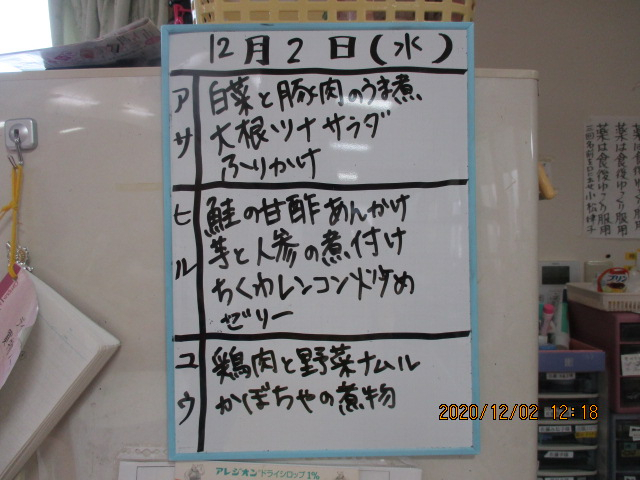 12月2日(水)
アサ
白菜と豚肉のうま煮
大根ツナサラダ
ふりかけ
ヒル
鮭の甘酢あんかけ
芋と人参の煮付け
ちくわレンコン炒め
ゼリー
ユウ
鶏肉と野菜ナムル
かぼちゃの煮物
2020/12/02 12:18
アレジオンドライシロップ1%
薬は食後ゆっくり服用
プリン